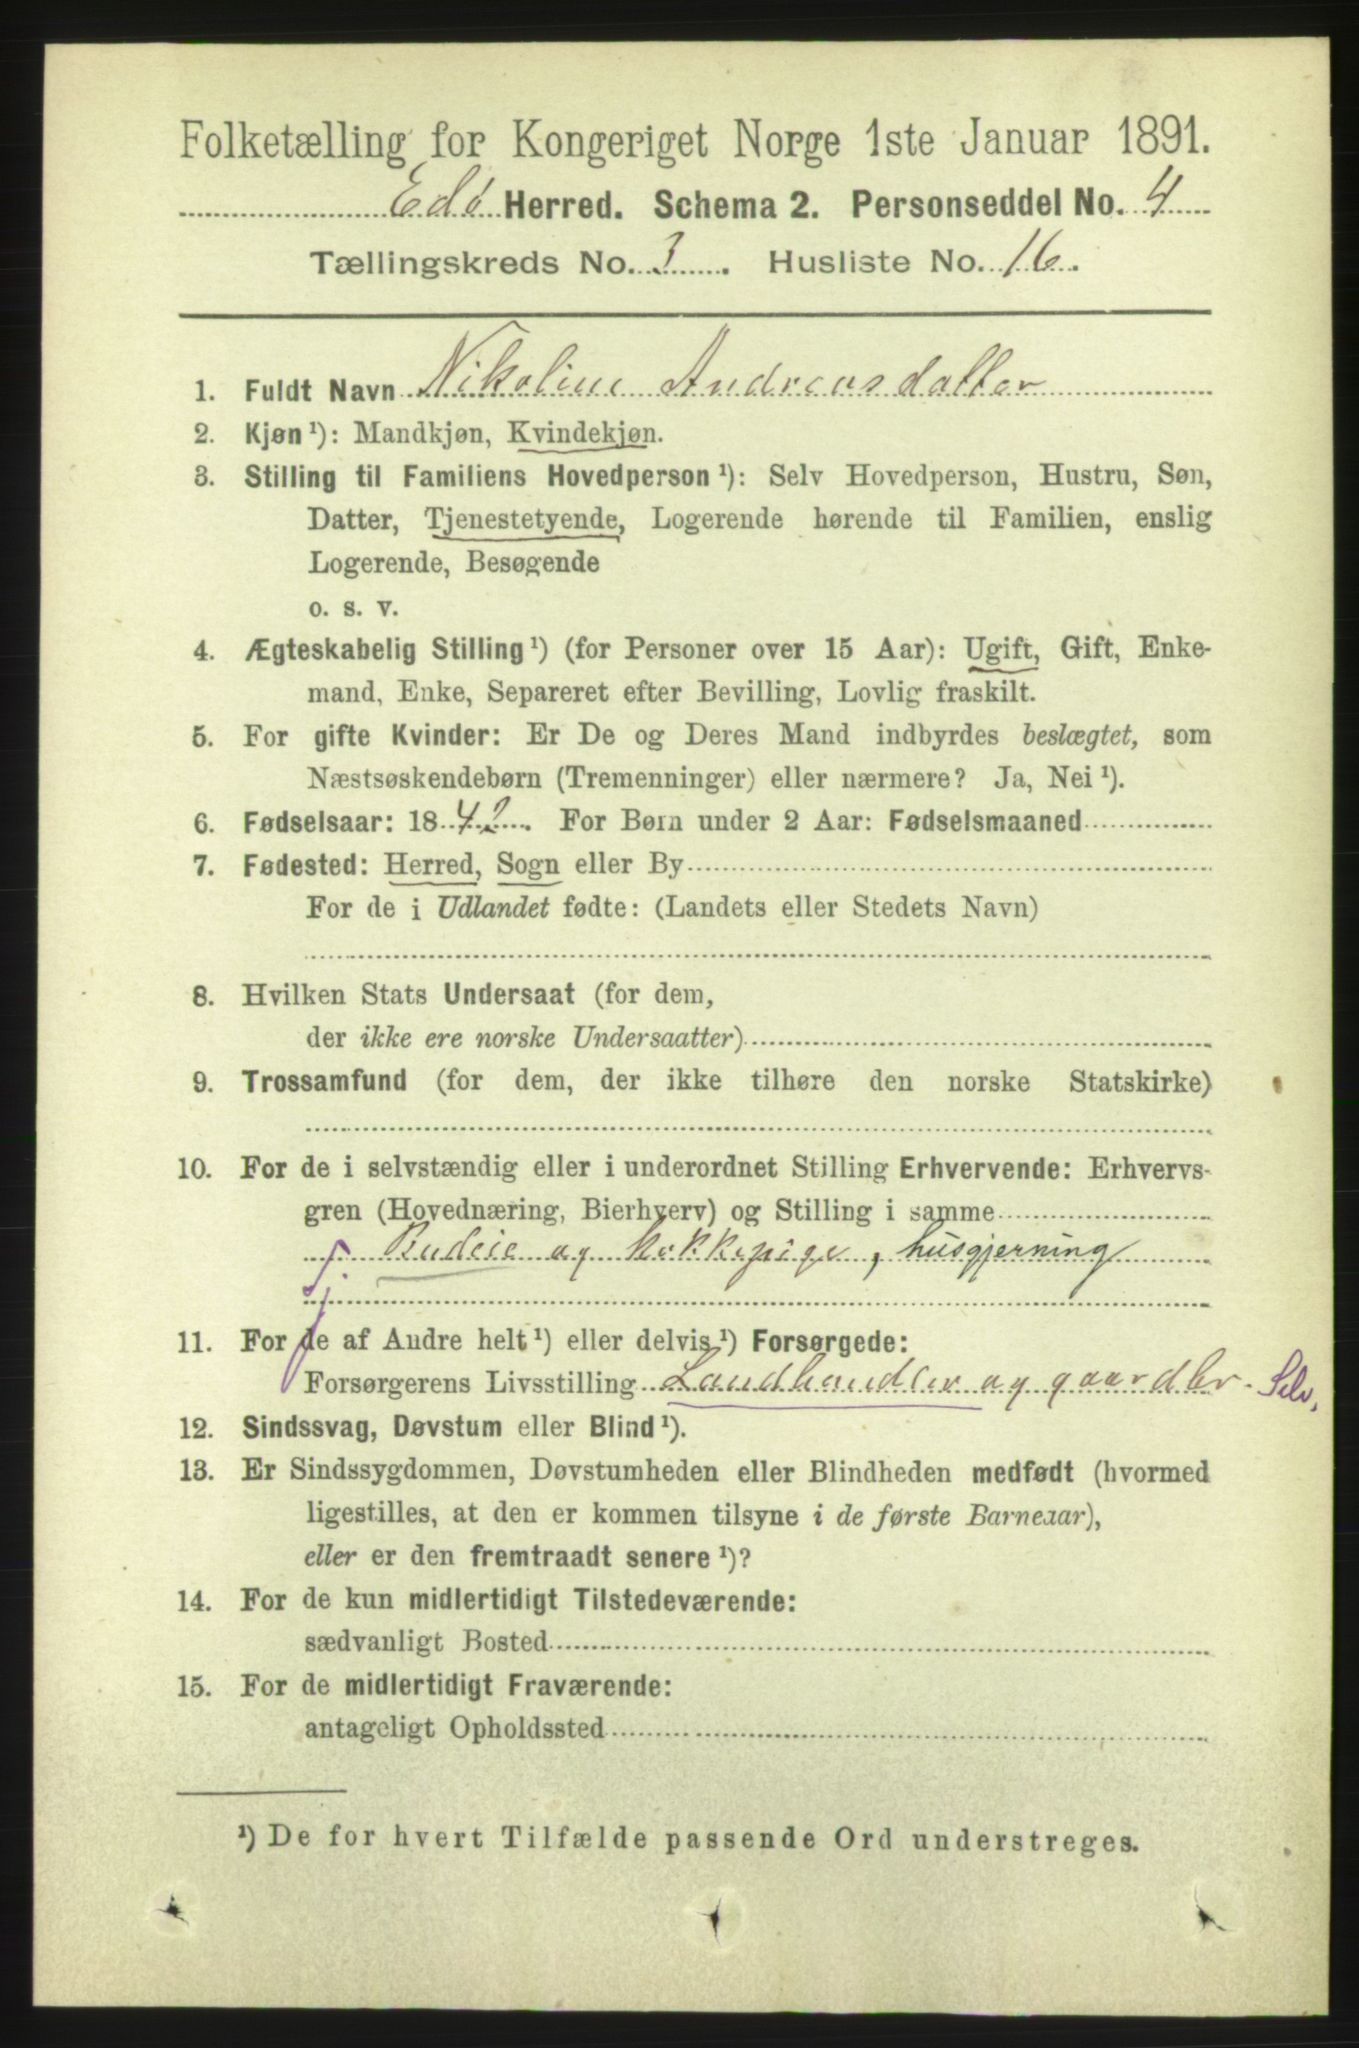 Folketælling for Kongeriget Norge 1ste Januar 1891.
Edø Herred. Schema 2. Personseddel No. 4
Tællingskreds No. 3. Husliste No. 16.
1. Fuldt Navn Nikoline Andreasdatter
2. Kjøn ¹): Mandkjøn, Kvindekjøn.
3. Stilling til Familiens Hovedperson ¹): Selv Hovedperson, Hustru, Søn,
Datter, Tjenestetyende, Logerende hørende til Familien, enslig
Logerende, Besøgende
o. s. v.
4. Ægteskabelig Stilling ¹) (for Personer over 15 Aar): Ugift, Gift, Enke-
mand, Enke, Separeret efter Bevilling, Lovlig fraskilt.
5. For gifte Kvinder: Er De og Deres Mand indbyrdes beslægtet, som
Næstsøskendebørn (Tremenninger) eller nærmere? Ja, Nei ¹).
6. Fødselsaar: 1842. For Børn under 2 Aar: Fødselsmaaned
7. Fødested: Herred, Sogn eller By
For de i Udlandet fødte: (Landets eller Stedets Navn)
8. Hvilken Stats Undersaat (for dem,
der ikke ere norske Undersaatter)
9. Trossamfund (for dem, der ikke tilhøre den norske Statskirke)
10. For de i selvstændig eller i underordnet Stilling Erhvervende: Erhvervs-
gren (Hovednæring, Bierhverv) og Stilling i samme
Budeie og kokkepige, husgjerning
11. For de af Andre helt ¹) eller delvis ¹) Forsørgede:
Forsørgerens Livsstilling Landhandler og gaardbr. Selv.
12. Sindssvag, Døvstum eller Blind ¹).
13. Er Sindssygdommen, Døvstumheden eller Blindheden medfødt (hvormed
ligestilles, at den er kommen tilsyne i de første Barneaar),
eller er den fremtraadt senere ¹)?
14. For de kun midlertidigt Tilstedeværende:
sædvanligt Bosted
15. For de midlertidigt Fraværende:
antageligt Opholdssted
¹) De for hvert Tilfælde passende Ord understreges.